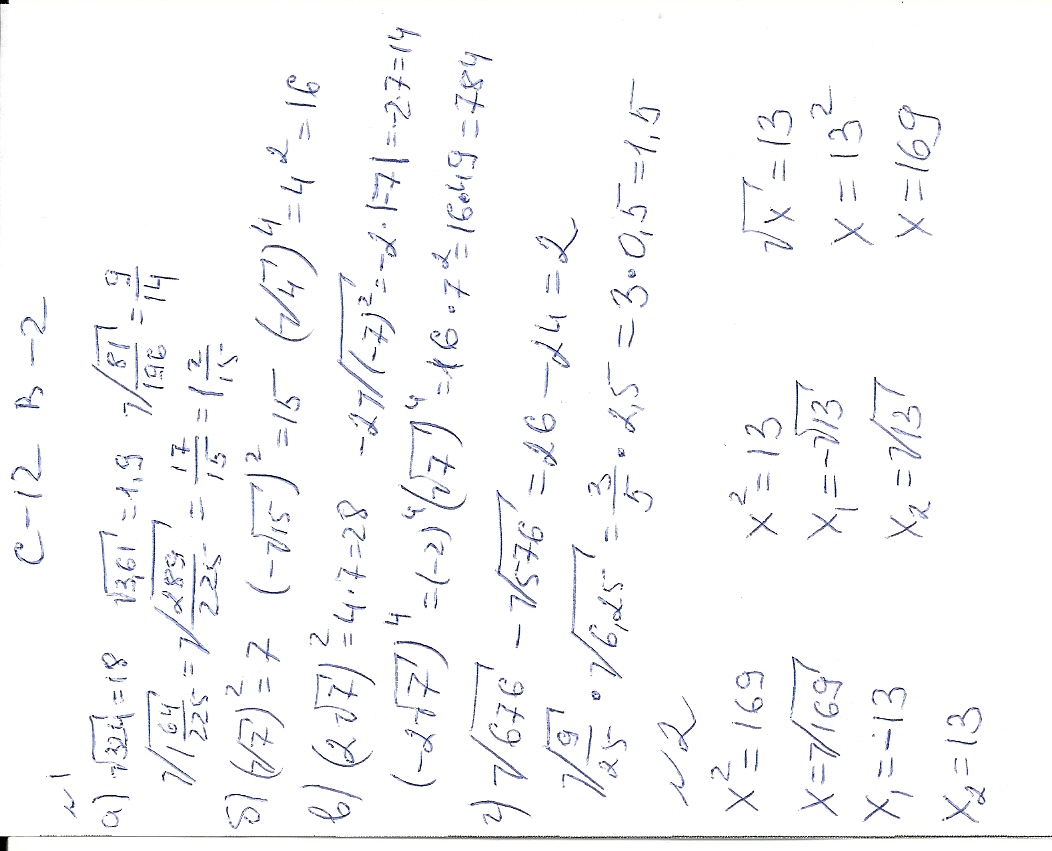 С-12 В-2
№1
а) √324 = 18 √3,61 = 1,9 √(81/196) = 9/14
√(1 64/225) = √(289/225) = 17/15 = 1 2/15
б) (√7)² = 7 (-√15)² = 15 (√4)⁴ = 4² = 16
в) (2√7)² = 4·7 = 28 -2√(-7)² = -2·|-7| = -2·7 = 14
(-2√7)⁴ = (-2)⁴(√7)⁴ = 16·7² = 16·49 = 784
г) √676 - √576 = 26 - 24 = 2
√(9/25) · √6,25 = 3/5 · 2,5 = 3·0,5 = 1,5
№2
x² = 169 x² = 13 √x = 13
x = √169 x₁ = -√13 x = 13²
x₁ = -13 x₂ = √13 x = 169
x₂ = 13